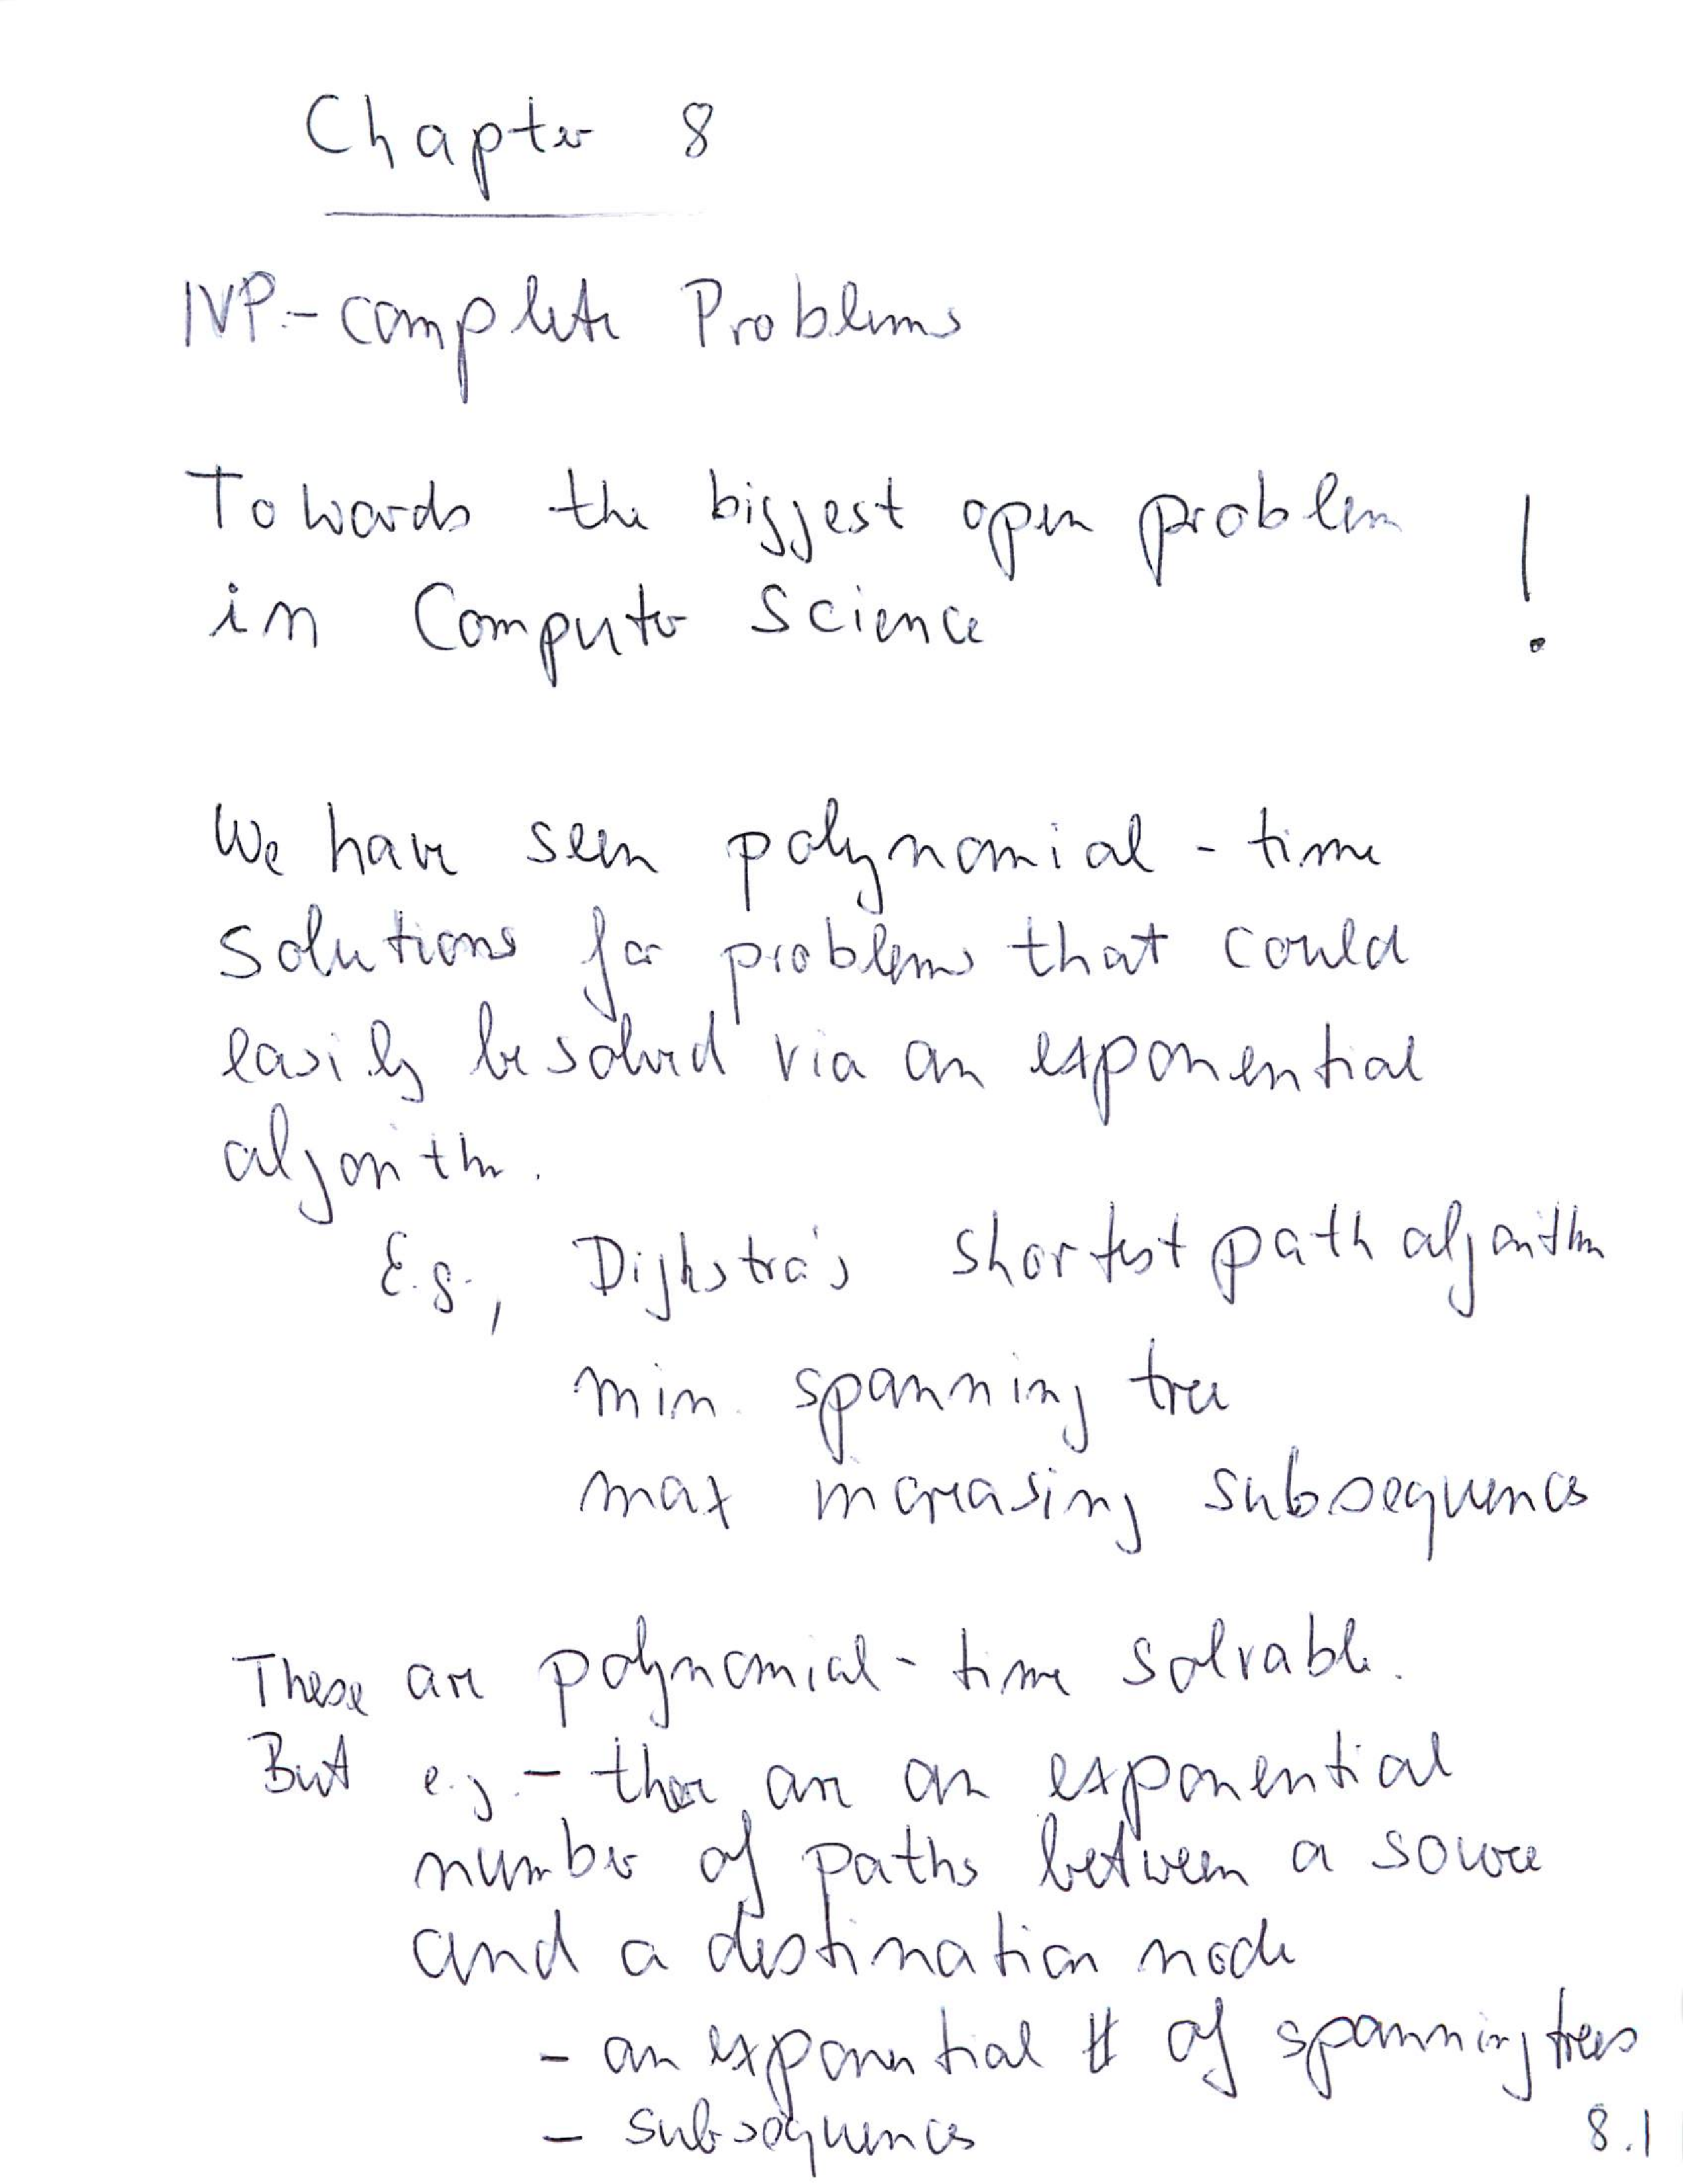 Chapter 8
NP-complete Problems
Towards the biggest open problem
in Computer Science !
We have seen polynomial-time
solutions for problems that could
easily be solved via an exponential
algorithm.
E.g., Dijkstra's shortest path algorithm
min. spanning tree
max increasing subsequences
These are polynomial-time solvable.
But e.g. - there are an exponential
number of paths between a source
and a destination node
- an exponential # of spanning trees
- subsequences
8.1